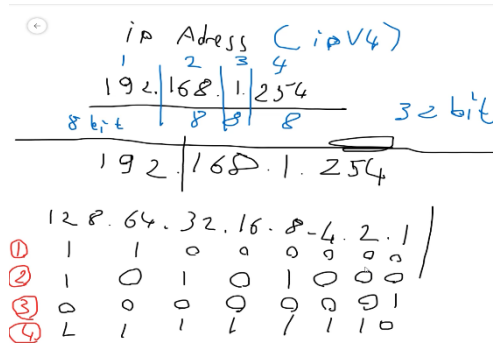 ip Adress (ipV4)
1 2 3 4
192.168.1.254
8 bit 8 8 8 32 bit
192.168.1.254
128.64.32.16.8-4.2.1
① 1 1 0 0 0 0 0 0
② 1 0 1 0 1 0 0 0
③ 0 0 0 0 0 0 0 1
④ 1 1 1 1 1 1 1 0